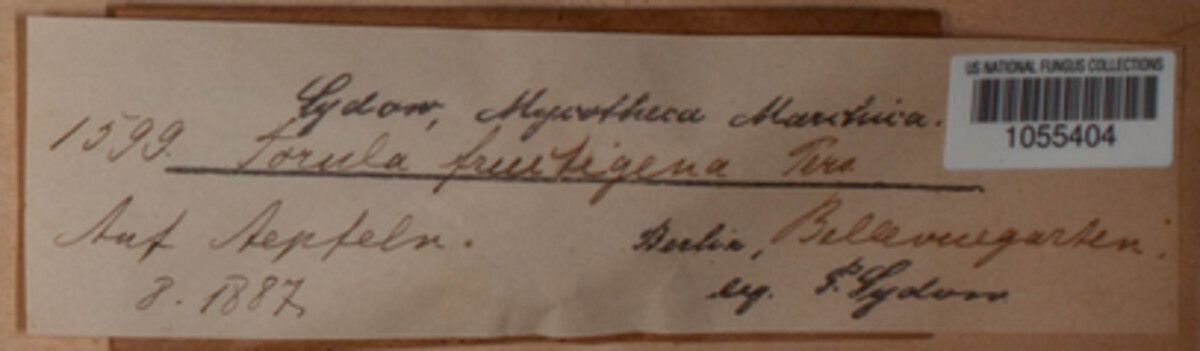 Sydow, Mycotheca Marchica.
US NATIONAL FUNGUS COLLECTIONS
1055404
1599. Torula fructigena Pers
Auf Aepfeln.
Berlin, Bellevuegarten.
8. 1887.
leg. P. Sydow